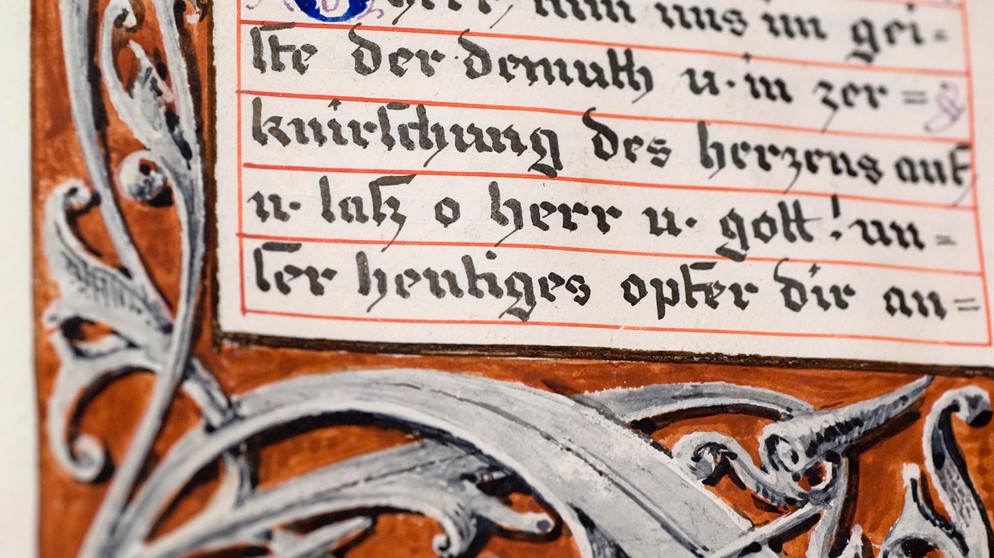 O herr, nim uns im gei-
ste der demuth u. in zer=
knirschung des herzens auf
u. laß o herr u. gott! un=
ser heutiges opfer dir an=